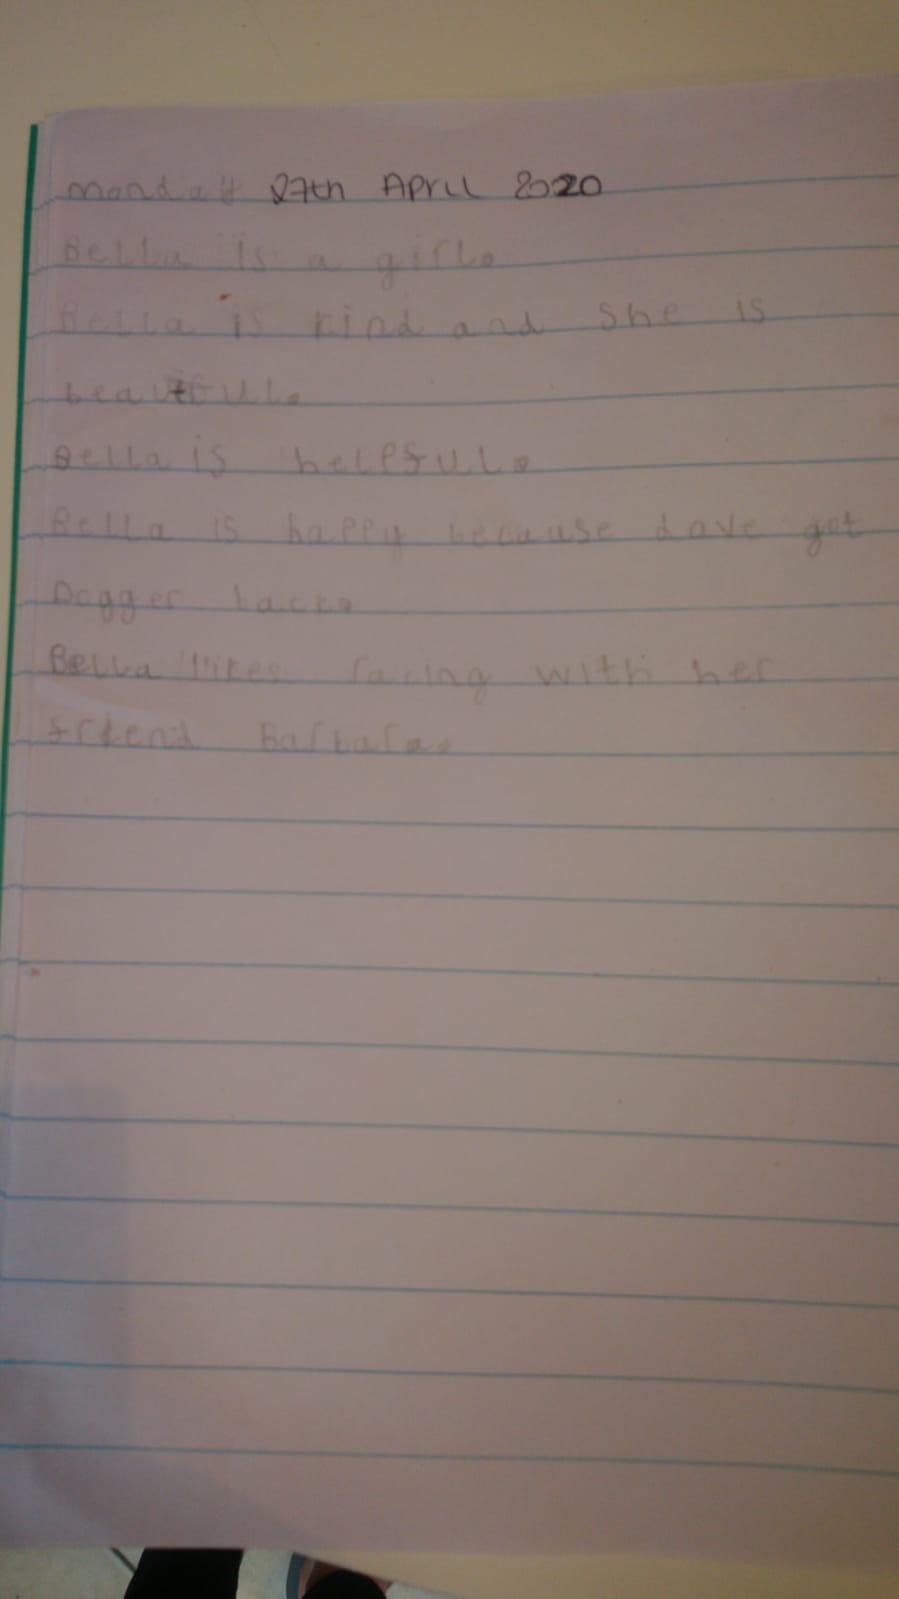 Monday 27th April 2020
Bella is a girl.
Bella is kind and she is
beautiful.
Bella is helpful.
Bella is happy because dave got
Dogger back.
Bella likes racing with her
friend Barbara.